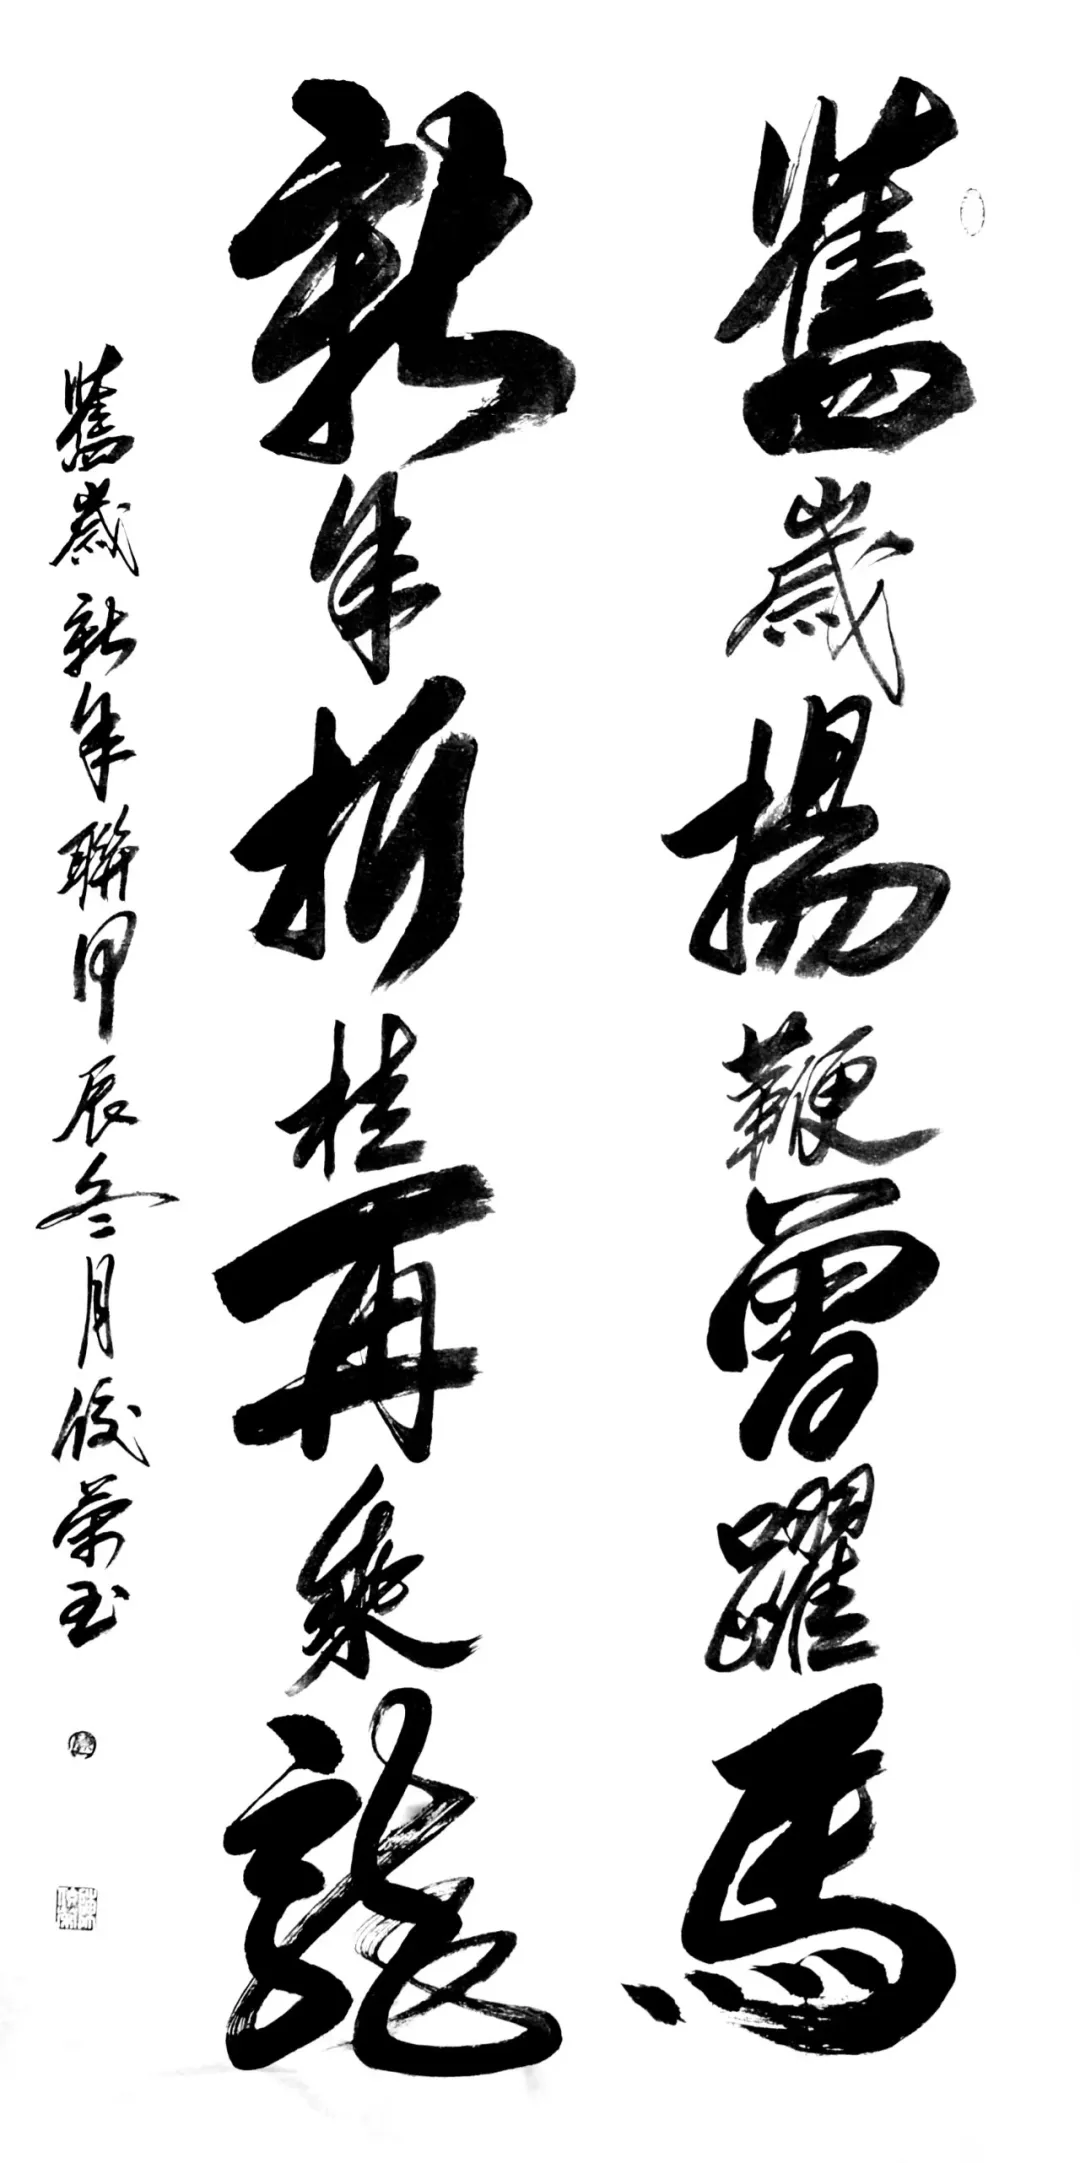 舊歲揚鞭曾躍馬
新年折桂再乘龍
舊歲新年聯甲辰冬月俊榮玉